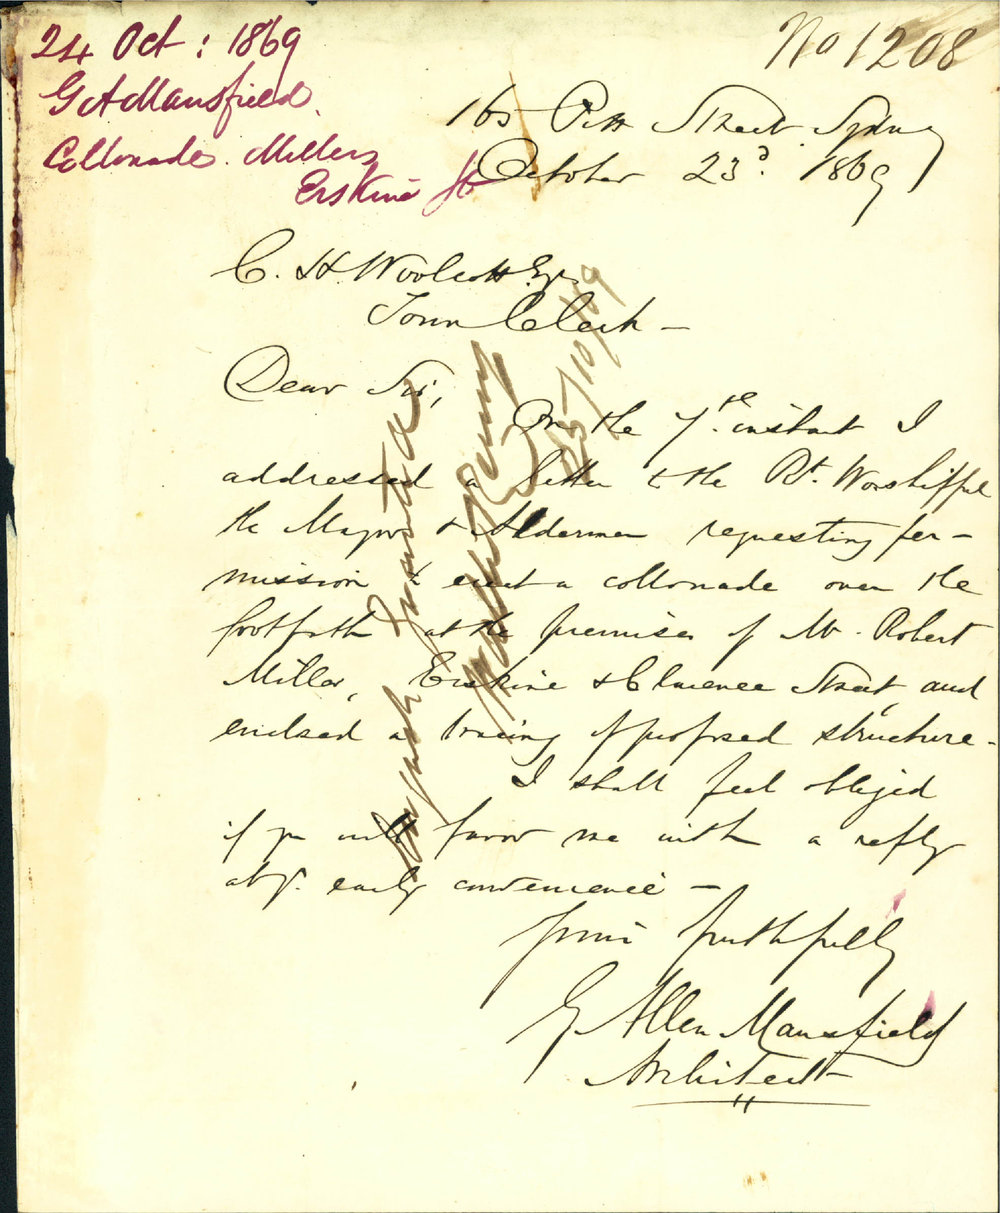 24 Oct : 1869
G A Mansfield.
Collonade. Millers
Erskine St
No 1208
165 Pitt Street Sydney
October 23d. 1869
C. H. Woolcott Esqr
Town Clerk –
Dear Sir,
On the 7th. instant I
addressed a letter to the Rt. Worshipful
the Mayor & Aldermen requesting per-
mission to erect a collonade over the
footpath at the premises of Mr. Robert
Miller, Erskine & Clarence Street, and
enclosed a tracing of proposed structure.
I shall feel obliged
if you will favor me with a reply
at yr. early convenience –
Yours faithfully
G. Allen Mansfield
Architect
Request granted
Walter Renny
25/10/69